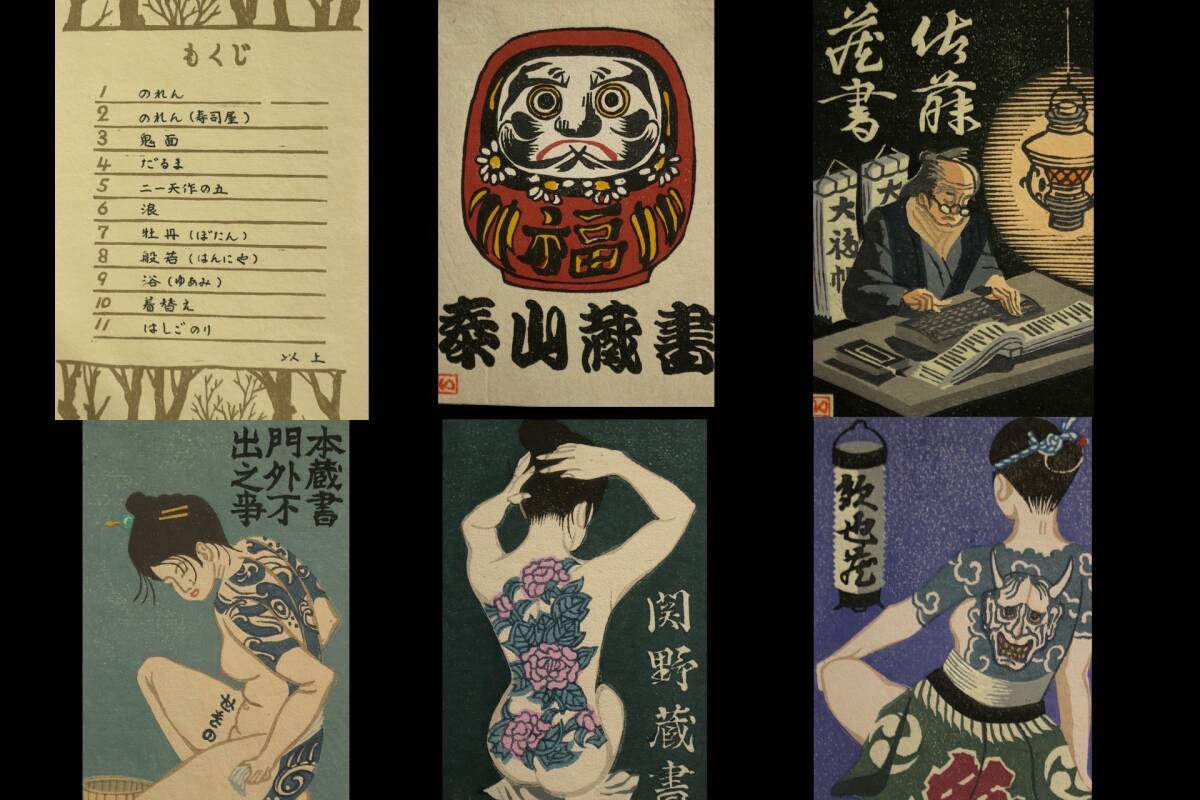 もくじ
1 のれん
2 のれん(寿司屋)
3 鬼面
4 だるま
5 二一天作の五
6 浪
7 牡丹(ぼたん)
8 般若(はんにや)
9 浴(ゆあみ)
10 着替え
11 はしごのり
以上
福
泰山蔵書
佐藤
蔵書
大
大福帳
本蔵書
門外不
出之事
関野蔵書
也蔵